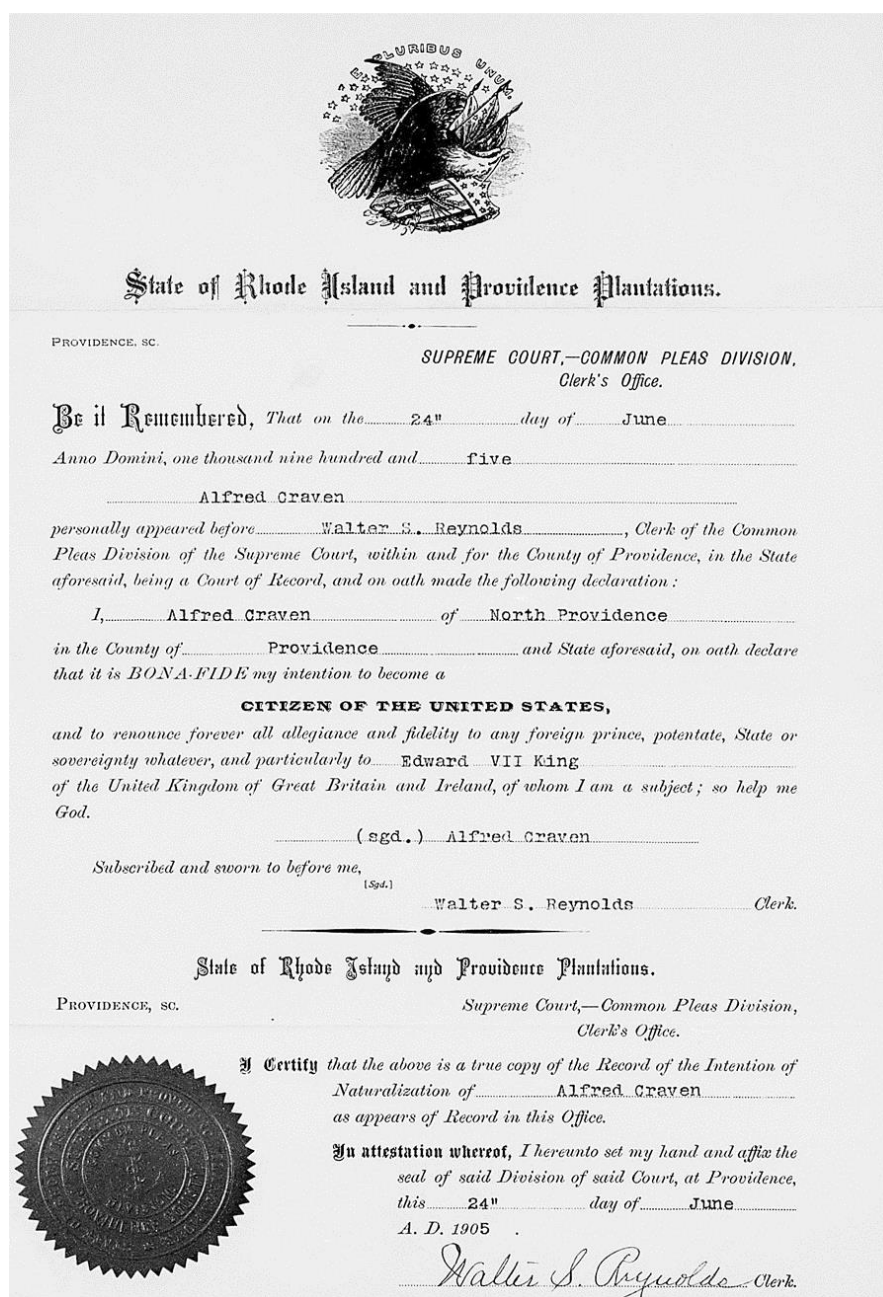 E PLURIBUS UNUM.
State of Rhode Island and Providence Plantations.
PROVIDENCE, SC.
SUPREME COURT,—COMMON PLEAS DIVISION,
Clerk's Office.
Be it Remembered, That on the 24" day of June
Anno Domini, one thousand nine hundred and five
Alfred Craven
personally appeared before Walter S. Reynolds, Clerk of the Common
Pleas Division of the Supreme Court, within and for the County of Providence, in the State
aforesaid, being a Court of Record, and on oath made the following declaration:
I, Alfred Craven of North Providence
in the County of Providence and State aforesaid, on oath declare
that it is BONA-FIDE my intention to become a
CITIZEN OF THE UNITED STATES,
and to renounce forever all allegiance and fidelity to any foreign prince, potentate, State or
sovereignty whatever, and particularly to Edward VII King
of the United Kingdom of Great Britain and Ireland, of whom I am a subject; so help me
God.
(sgd.) Alfred Craven
Subscribed and sworn to before me,
[Sgd.]
Walter S. Reynolds Clerk.
State of Rhode Island and Providence Plantations.
PROVIDENCE, SC.
Supreme Court,—Common Pleas Division,
Clerk's Office.
I Certify that the above is a true copy of the Record of the Intention of
Naturalization of Alfred Craven
as appears of Record in this Office.
In attestation whereof, I hereunto set my hand and affix the
seal of said Division of said Court, at Providence,
this 24" day of June
A. D. 1905 .
Walter S. Reynolds Clerk.